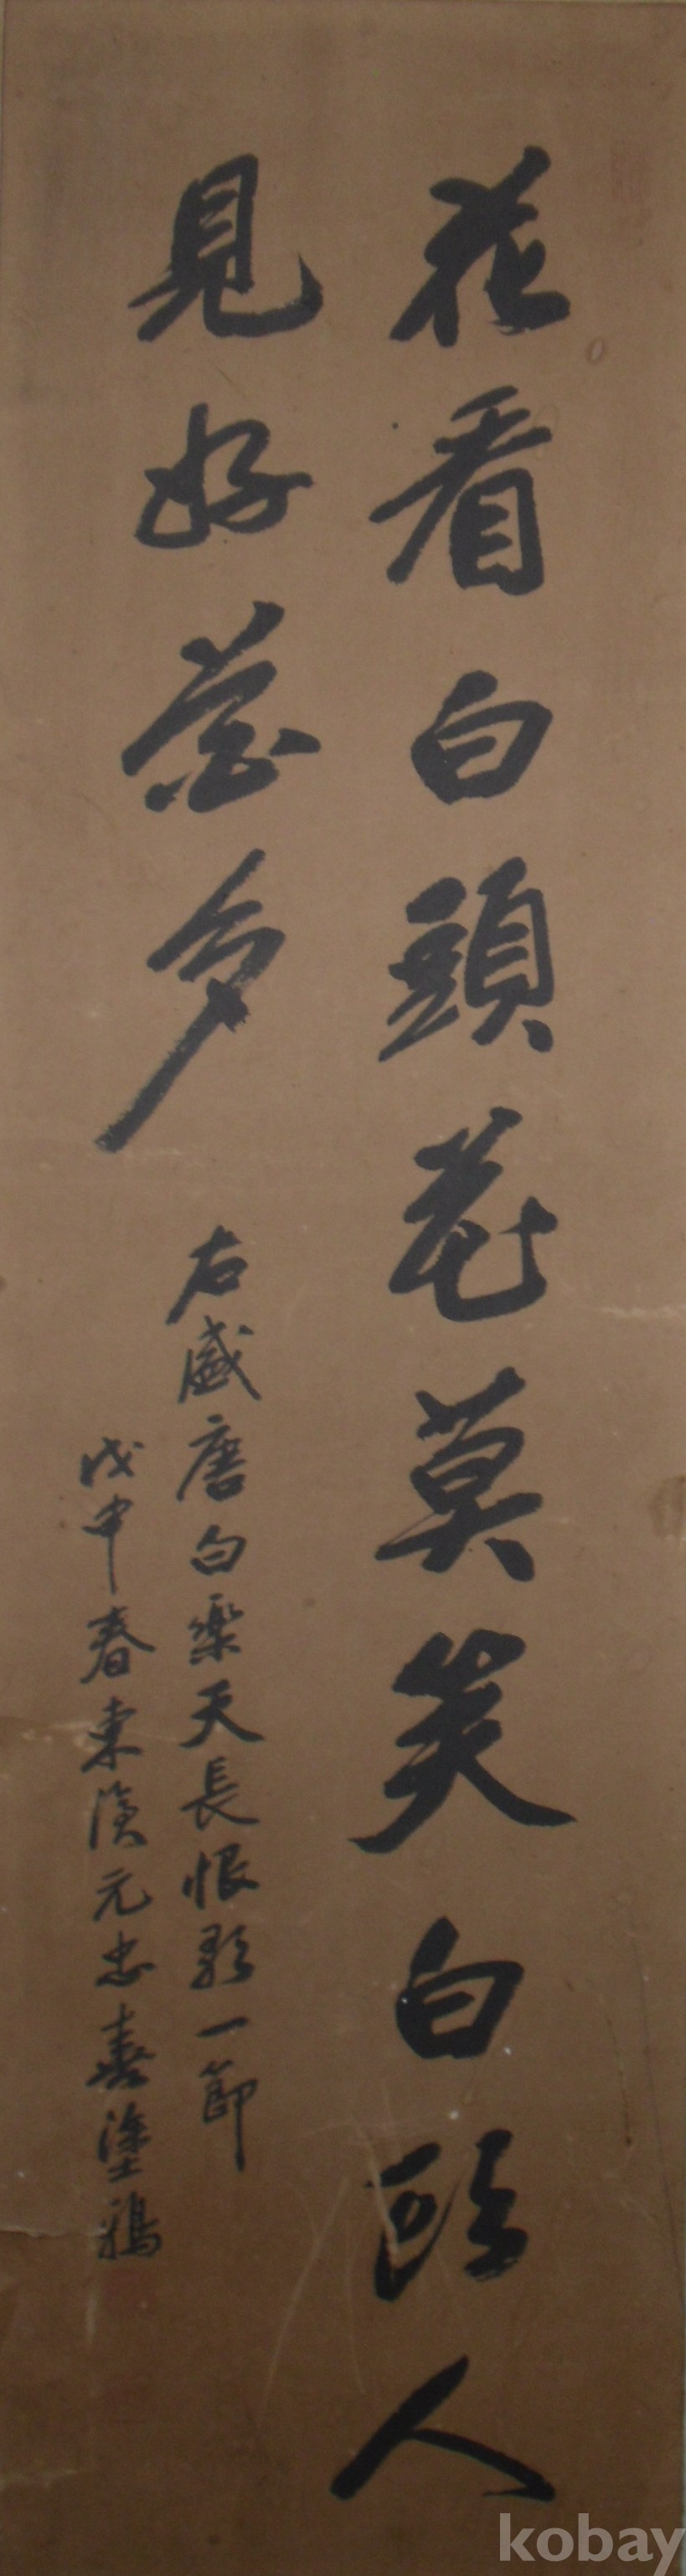 花看白頭花莫笑白頭人
見好花多
右盛唐白樂天長恨歌一節
戊申春東濱元忠喜塗鴉
kobay